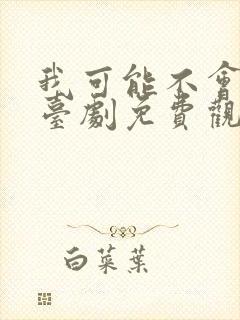 我可能不會
臺劇免費觀
白菜葉